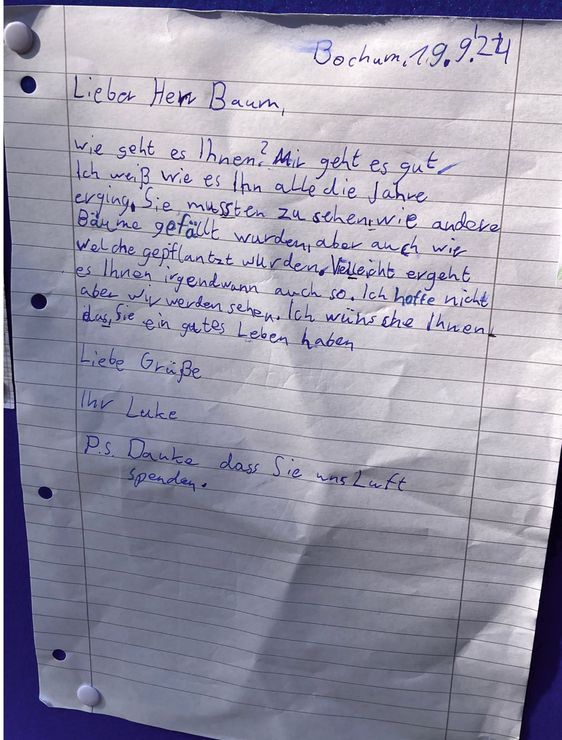 Bochum, 19.9.'24
Lieber Herr Baum,
wie geht es Ihnen? Mir geht es gut.
Ich weiß wie es Ihn alle die Jahre
erging. Sie mussten zu sehen, wie andere
Bäume gefällt wurden, aber auch wie
welche gepflantzt wurden. Velleicht ergeht
es Ihnen irgendwann auch so. Ich hoffe nicht
aber wir werden sehen. Ich wünsche Ihnen
das, Sie ein gutes Leben haben
Liebe Grüße
Ihr Luke
P.s. Danke dass Sie uns Luft
spenden.